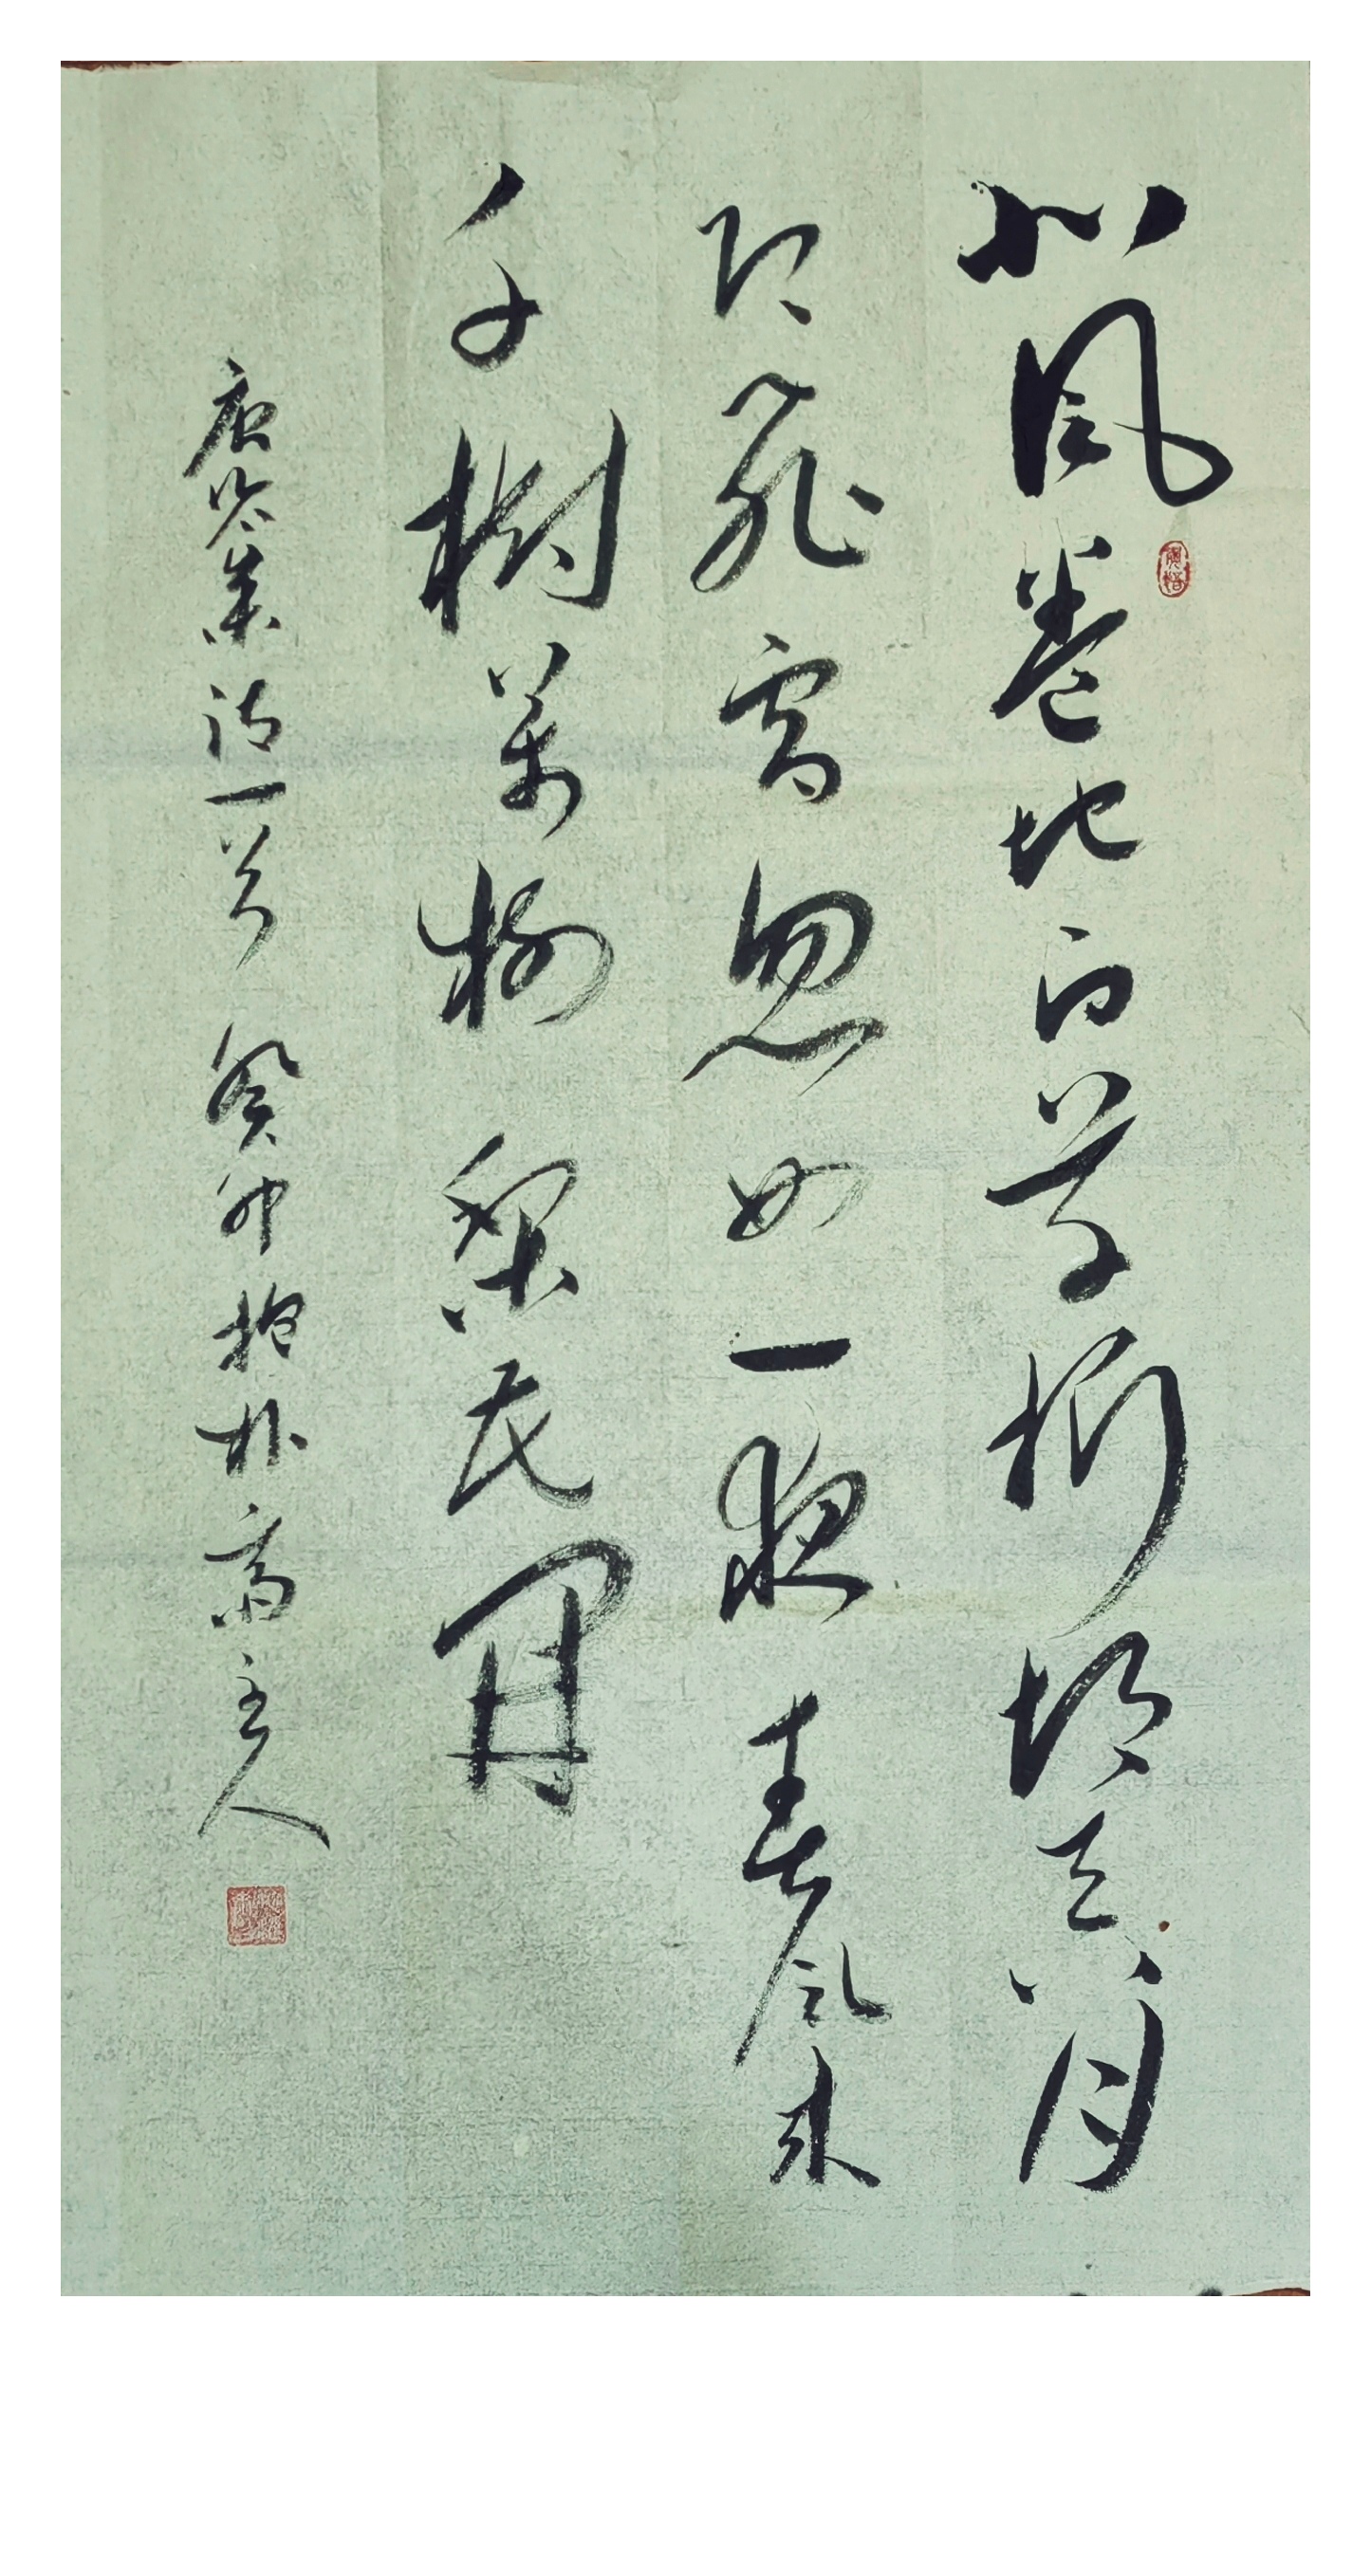 北風卷地白草折胡天八月
即飛雪忽如一夜春風来
千樹萬樹梨花開
唐岑參詩一首 癸卯抱朴齋主人